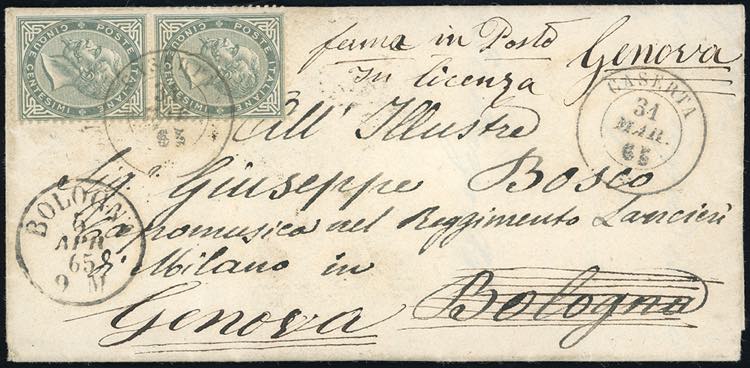 POSTE ITALIANE
CINQUE CENTESIMI
POSTE ITALIANE
CINQUE CENTESIMI
ferma in Posta Genova
In licenza
CASERTA
31
MAR.
65
CASERTA
31
MAR.
65
All' Illustre
Sig. Giuseppe Bosco
Capomusica nel Reggimento Lancieri
di Milano in
Genova Bologna
BOLOGNA
APR
65
9 M